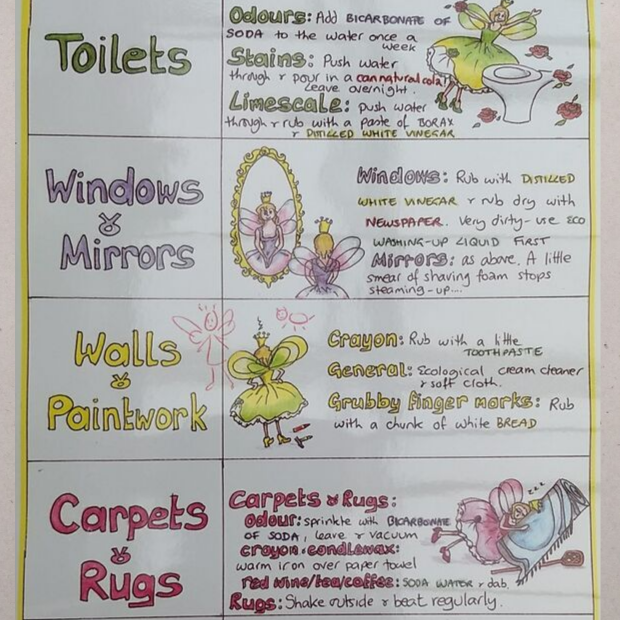 Toilets
Odours: Add BICARBONATE OF
SODA to the water once a
week
Stains: Push water
through & pour in a can natural cola!
Leave overnight.
Limescale: push water
through & rub with a paste of BORAX
& DISTILLED WHITE VINEGAR
Windows
&
Mirrors
Windows: Rub with DISTILLED
WHITE VINEGAR & rub dry with
NEWSPAPER. Very dirty - use ECO
WASHING-UP LIQUID FIRST
Mirrors: as above. A little
smear of shaving foam stops
steaming-up....
Walls
&
Paintwork
Crayon: Rub with a little
TOOTHPASTE
General: Ecological cream cleaner
& soft cloth.
Grubby finger marks: Rub
with a chunk of white BREAD
Carpets
&
Rugs
Carpets & Rugs:
Odour: sprinkle with BICARBONATE
OF SODA, leave & vacuum
crayon & candlewax:
warm iron over paper towel
red wine/tea/coffee: SODA WATER & dab.
Rugs: Shake outside & beat regularly.
zzz